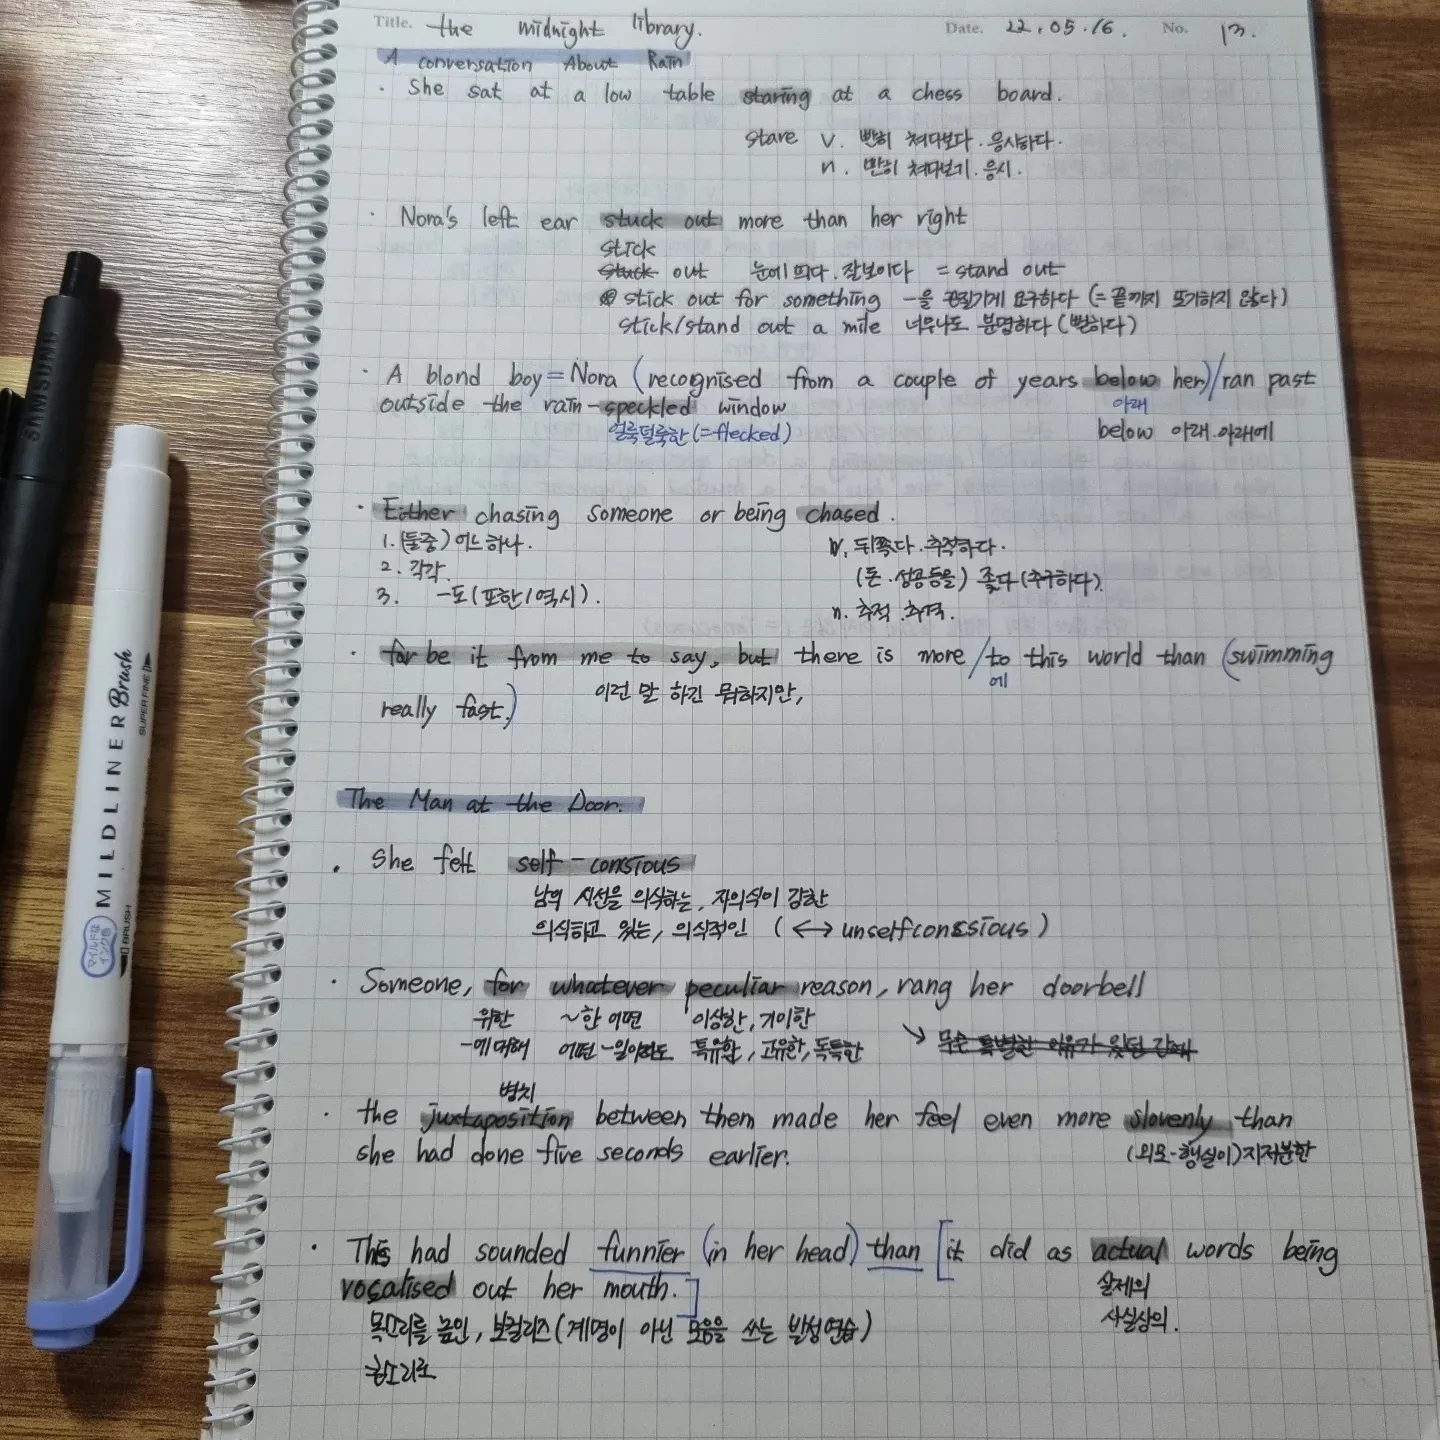 Title. the midnight library. Date. 22.05.16. No. 13.
A conversation About Rain
· She sat at a low table staring at a chess board.
stare v. 빤히 쳐다보다. 응시하다.
n. 빤히 쳐다보기. 응시.
· Nora's left ear stuck out more than her right
stick
stuck out 눈에 띄다. 잘보이다 = stand out
stick out for something -을 끈질기게 요구하다 (= 끝까지 포기하지 않다)
stick/stand out a mile 너무나도 분명하다 (뻔하다)
· A blond boy = Nora (recognised from a couple of years below her)/ran past
아래
outside the rain-speckled window
얼룩덜룩한 (=flecked) below 아래. 아래에
· Either chasing someone or being chased.
1. (둘중) 어느 하나. v. 뒤쫓다. 추적하다.
2. 각각. (돈. 성공등을) 좇다 (추구하다).
3. -도 (또한/역시). n. 추적. 추격.
· far be it from me to say, but there is more / to this world than (swimming
에
이런 말 하긴 뭐하지만,
really fast.)
The Man at the Door.
· She felt self-consious
남의 시선을 의식하는, 자의식이 강한
의식하고 있는, 의식적인 (↔ unselfconssious)
· Someone, for whatever peculiar reason, rang her doorbell
위한 ~한 어떤 이상한, 기이한
-에 대해 어떤 -일이라도 특유한, 고유한, 독특한 ↘ 무슨 특별한 이유가 있던 간에
병치
· the juxtaposition between them made her feel even more slovenly than
she had done five seconds earlier. (외모-행실이) 지저분한
· This had sounded funnier (in her head) than [it did as actual words being
실제의
vocalised out her mouth.]
목소리를 높인, 보컬리즈 (계명이 아닌 모음을 쓰는 발성연습) 사실상의.
SAMSUNG
MILDLINER Brush
SUPER FINE
BRUSH